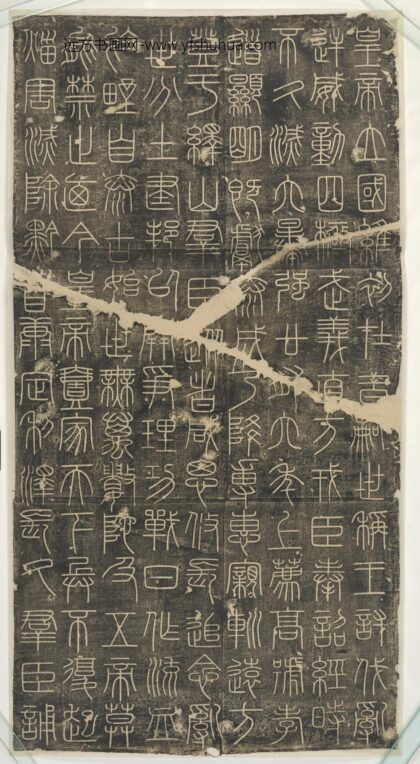 远方书画网-www.yishuhua.com
皇帝立國維初在昔嗣世稱王討伐亂
逆威動四極武義直方戎臣奉詔經時
不久滅六暴強廿有六年上薦高號孝
道顯明既獻泰成乃降專惠親巡遠方
登于繹山群臣從者咸思攸長追念亂
世分土建邦以開爭理功戰日作流血
於野自泰古始世無萬數陀及五帝莫
能禁止廼今皇帝壹家天下兵不復起
災害滅除黔首康定利澤長久群臣誦